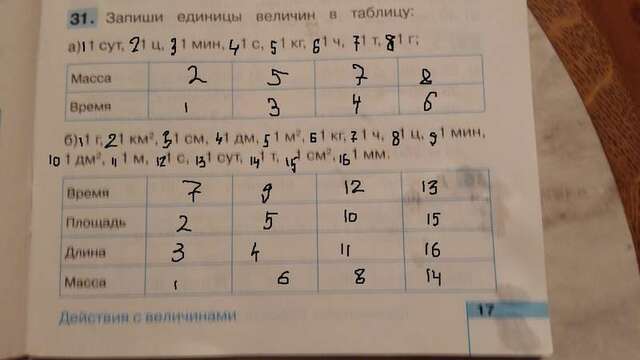 31. Запиши единицы величин в таблицу:
а) 1 1 сут, 2 1 ц, 3 1 мин, 4 1 с, 5 1 кг, 6 1 ч, 7 1 т, 8 1 г;
Масса 2 5 7 8
Время 1 3 4 6
б) 1 1 г, 2 1 км², 3 1 см, 4 1 дм, 5 1 м², 6 1 кг, 7 1 ч, 8 1 ц, 9 1 мин,
10 1 дм², 11 1 м, 12 1 с, 13 1 сут, 14 1 т, 15 1 см², 16 1 мм.
Время 7 9 12 13
Площадь 2 5 10 15
Длина 3 4 11 16
Масса 1 6 8 14
17
Действия с величинами